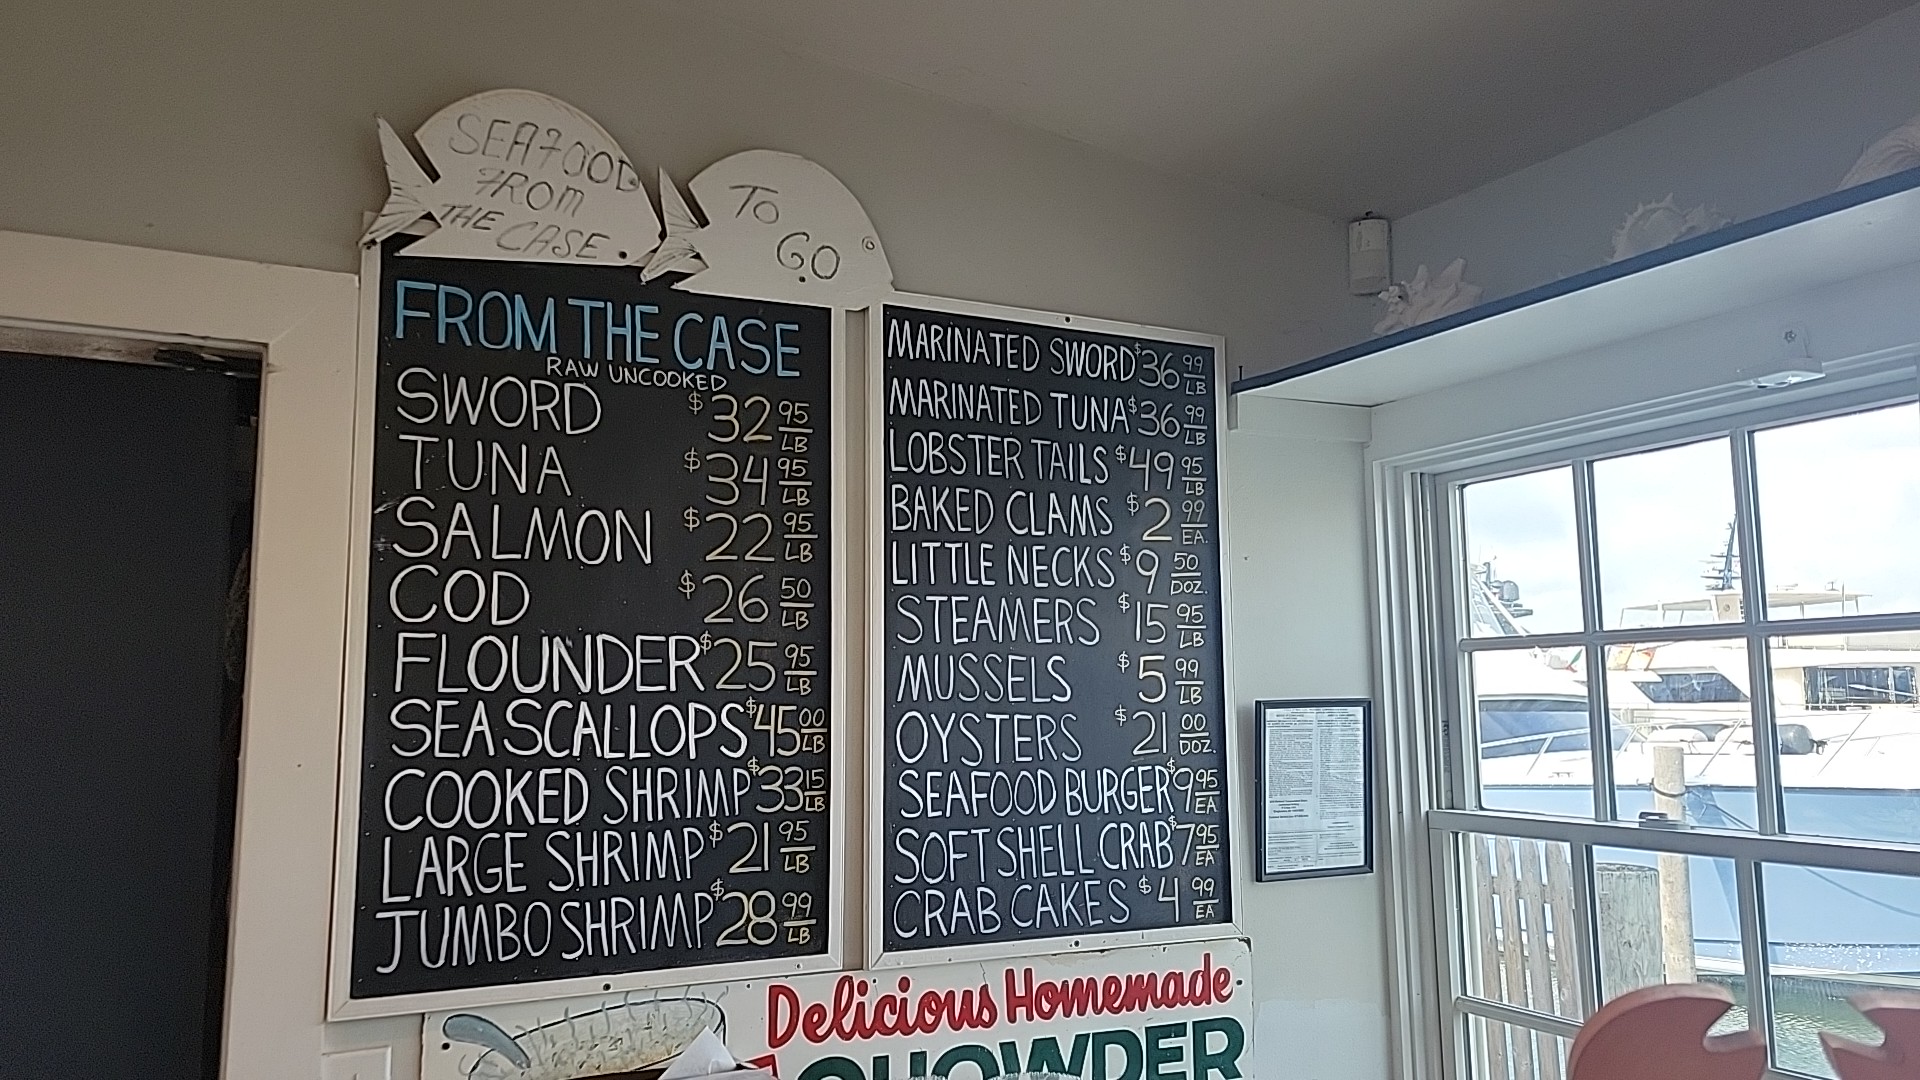 SEAFOOD
FROM
THE CASE
TO
GO
FROM THE CASE
RAW UNCOOKED
SWORD $32 95 LB
TUNA $34 95 LB
SALMON $22 95 LB
COD $26 50 LB
FLOUNDER $25 95 LB
SEA SCALLOPS $45 00 LB
COOKED SHRIMP $33 15 LB
LARGE SHRIMP $21 95 LB
JUMBO SHRIMP $28 99 LB
MARINATED SWORD $36 99 LB
MARINATED TUNA $36 99 LB
LOBSTER TAILS $49 95 LB
BAKED CLAMS $2 99 EA.
LITTLE NECKS $9 50 DOZ.
STEAMERS $15 95 LB
MUSSELS $5 99 LB
OYSTERS $21 00 DOZ.
SEAFOOD BURGER $9 95 EA
SOFT SHELL CRAB $7 95 EA
CRAB CAKES $4 99 EA
Delicious Homemade
CHOWDER